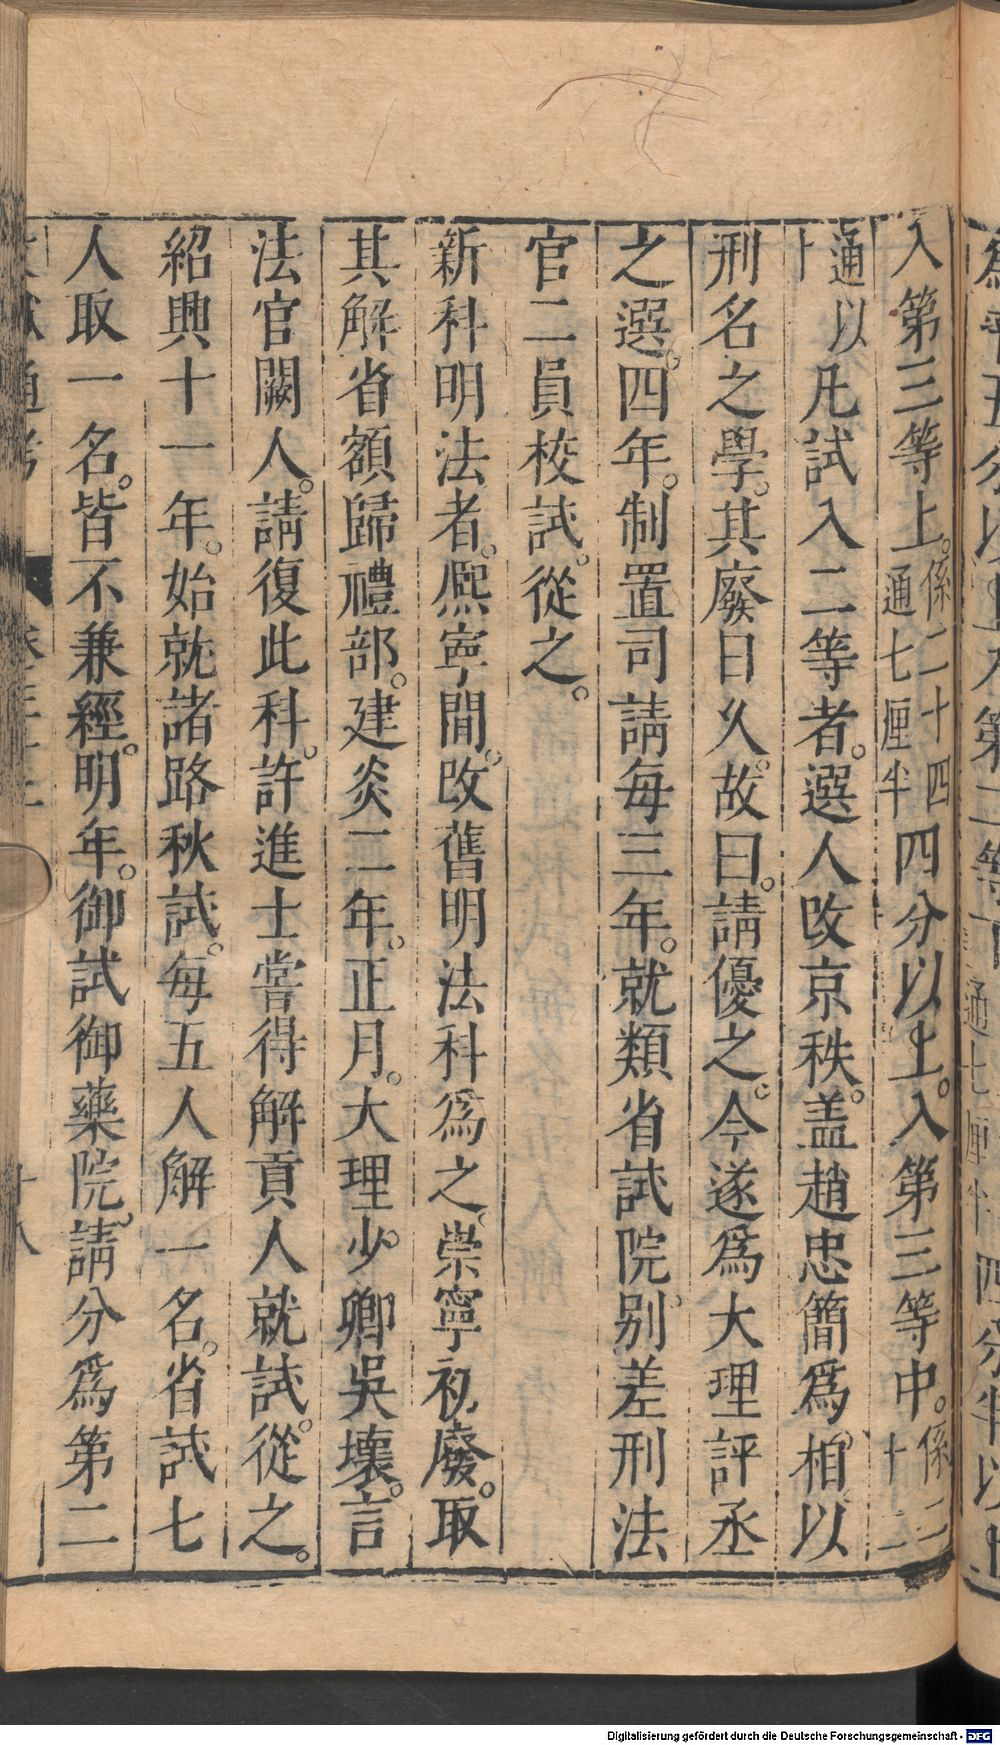 入第三等上。係二十四通七厘半四分以上。入第三等中。係二十二
通以十凡試入二等者。選人改京秩。蓋趙忠簡爲相。以
刑名之學。其廢日久。故曰。請優之。今遂爲大理評丞
之選。四年。制置司請每三年。就類省試院。别差刑法
官二員校試。從之。
新科明法者。熈寧間。改舊明法科爲之。崇寧初廢。取
其解省額歸禮部。建炎二年。正月。大理少卿吳瓌。言
法官闕人。請復此科。許進士嘗得解貢人就試。從之。
紹興十一年。始就諸路秋試。每五人解一名。省試七
人取一名。皆不兼經。明年。御試御藥院。請分爲第二
十八
Digitalisierung gefördert durch die Deutsche Forschungsgemeinschaft - DFG